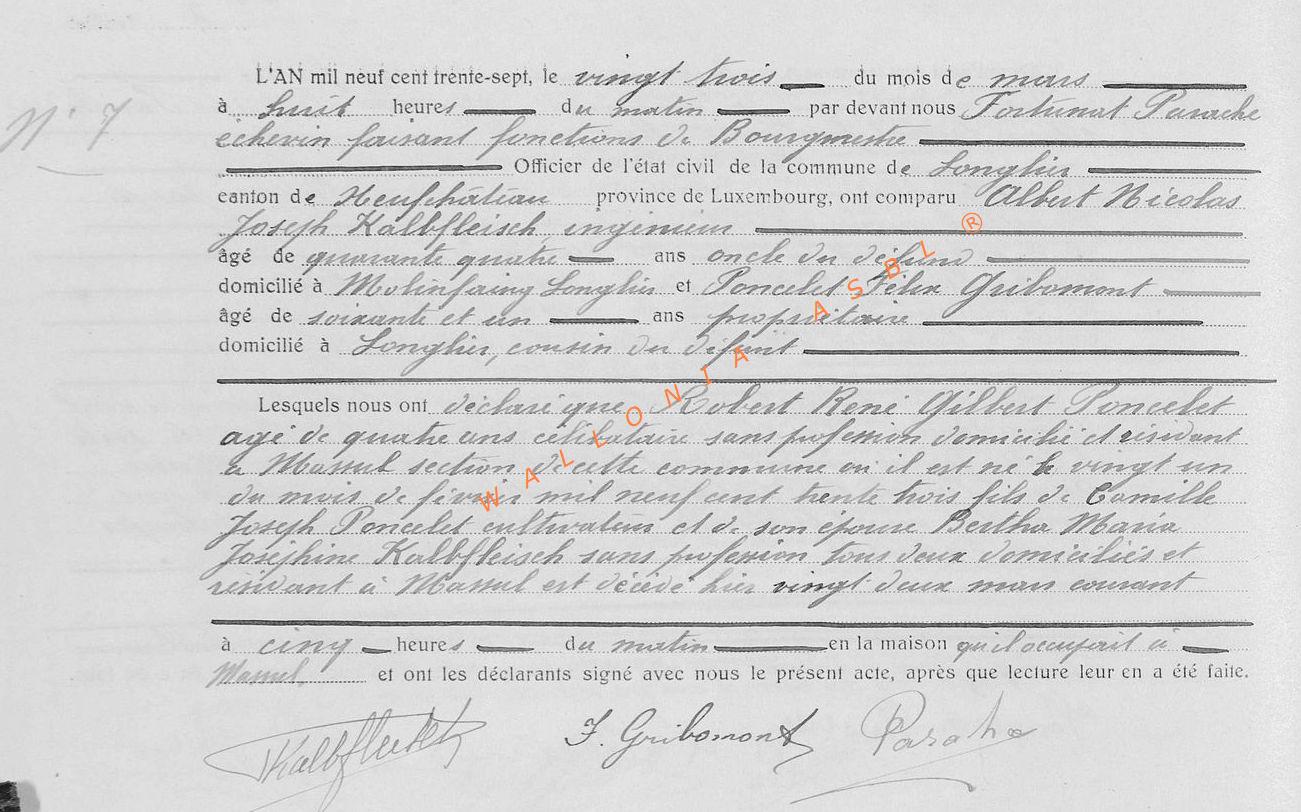 N° 7
L'AN mil neuf cent trente-sept, le vingt trois du mois de mars
à huit heures du matin par devant nous Fortunat Parache
échevin faisant fonctions de Bourgmestre
Officier de l'état civil de la commune de Longlier
canton de Neufchâteau province de Luxembourg, ont comparu Albert Nicolas
Joseph Kalbfleisch ingénieur
âgé de quarante quatre ans oncle du défunt
domicilié à Molinfaing Longlier et Poncelet Félix Gribomont
âgé de soixante et un ans propriétaire
domicilié à Longlier, cousin du défunt
Lesquels nous ont déclaré que Robert René Gilbert Poncelet
agé de quatre ans célibataire sans profession domicilié et résidant
à Massul section de cette commune où il est né le vingt un
du mois de février mil neuf cent trente trois fils de Camille
Joseph Poncelet cultivateur et de son épouse Bertha Maria
Joséphine Kalbfleisch sans profession tous deux domiciliés et
résidant à Massul est décédé hier vingt deux mars courant
à cinq heures du matin en la maison qu'il occupait à
Massul. et ont les déclarants signé avec nous le présent acte, après que lecture leur en a été faite.
Kalbfleisch F. Gribomont Parache
WALLONIA ASBL ®